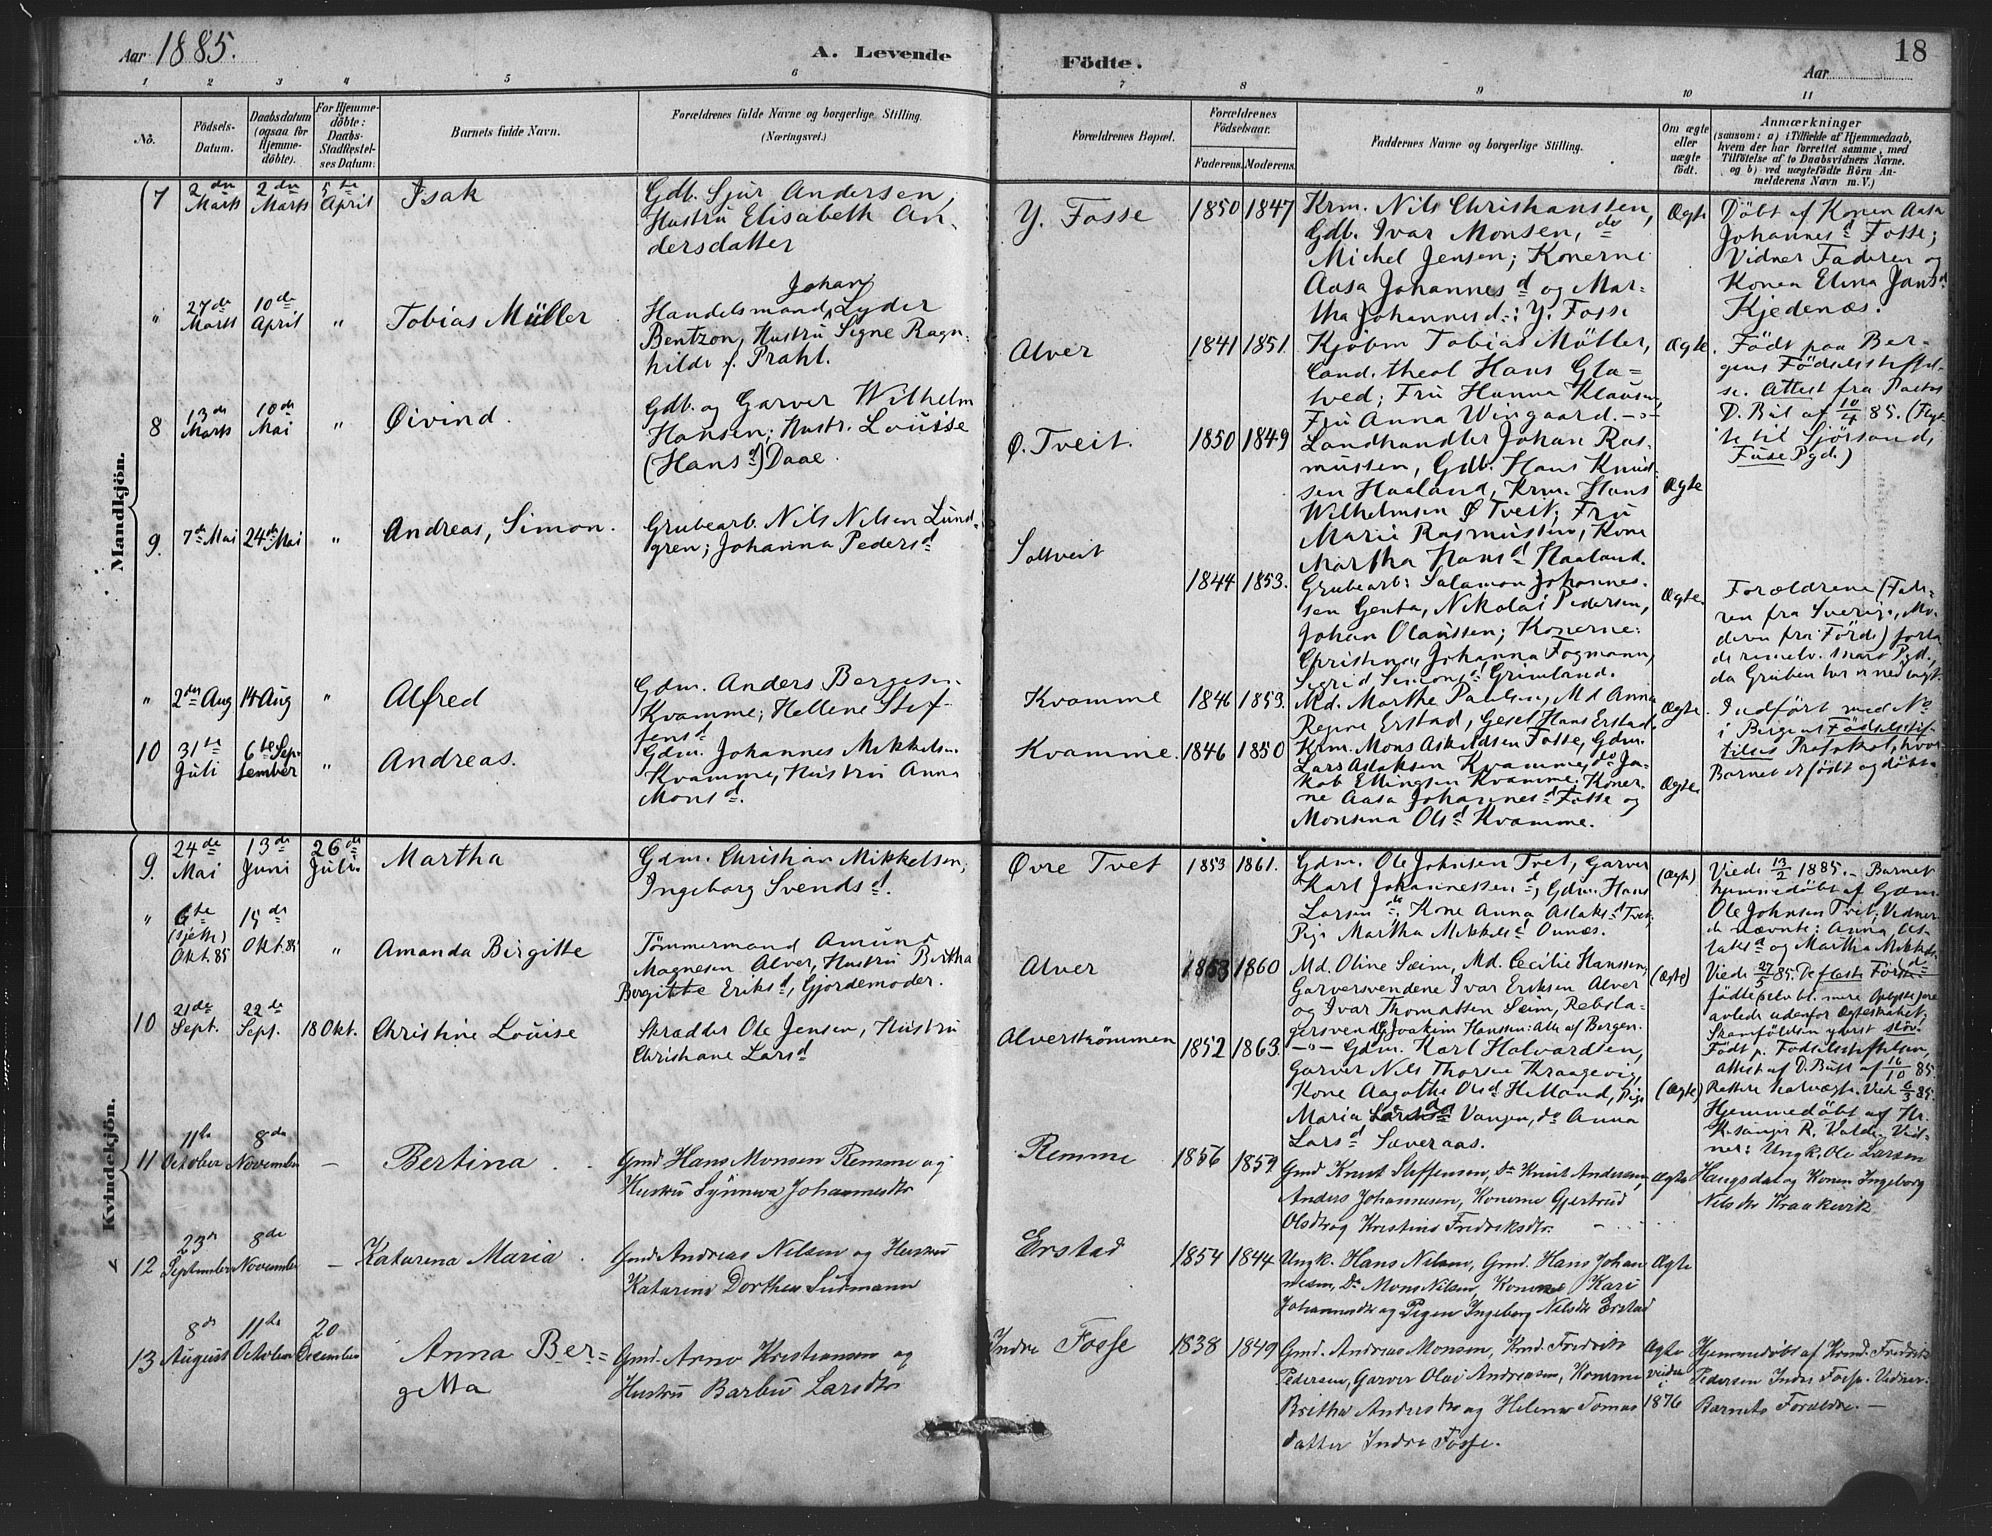 Aar 1885.
A. Levende
Födte.
Aar
18
1 2 3 4 5 6 7 8 9 10 11
No.
Födsels-
Datum.
Daabsdatum
(ogsaa for
Hjemme-
döbte).
For Hjemme-
döbte:
Daabs-
Stadfæstel-
ses Datum.
Barnets fulde Navn.
Forældrenes fulde Navne og borgerlige Stilling.
(Næringsvei.)
Forældrenes Bopæl.
Forældrenes
Födselsaar.
Faderens. Moderens.
Faddernes Navne og borgerlige Stilling.
Om ægte
eller
uægte
födt.
Anmærkninger
(saasom: a) i Tilfælde af Hjemmedaab,
hvem der har forrettet samme, med
Tilföielse af to Daabsvidners Navne.
og b) ved uægtefödte Börn An-
melderens Navn m. V.)
Mandkjön.
7 2den Marts 2den Marts 5te April Isak
Gdb. Sjur Andersen,
Hustru Elisabeth An-
dersdatter
Y. Fosse 1850 1847
Krm. Nils Christiansen,
Gdb. Ivar Monsen, do
Michel Jensen; Konerne
Aasa Johannesd og Mar-
tha Johannesd: Y. Fosse
Ægte
Döbt af Konen Aasa
Johannesd Fosse;
Vidner Faderen og
Konen Elina Jansd
Kjedenæs.
" 27de Marts 10de April " Tobias Müller
Handelsmand Johan Lyder
Bentzon, Hustru Signe Ragn-
hilde f. Prahl.
Alver 1841 1851.
Kjöbm Tobias Møller,
Cand. theol Hans Gla-
tved; Fru Hanna Klausen,
Fru Anna Wingaard.
Ægte
Födt paa Ber-
gens Födselsstiftel-
se. Attest fra Pastor
D. Bul af 10/4 85. (Flyt-
te til Sjörsand,
Fuse Pgd.)
8 13de Marts 10de Mai " Øivind.
Gdb. og Garver Wilhelm
Hansen; Hustr. Louise
(Hansd) Daae.
Ø. Tveit. 1850 1849
Landhandler Johan Ras-
mussen, Gdb. Hans Knud-
sen Haaland, Krm. Hans
Wilhelmsen Ø Tveit; Fru
Marie Rasmussen, Kone
Martha Hansd Haaland.
Ægte
9. 7de Mai 24de Mai " Andreas, Simon.
Grubearb. Nils Nilsen Lund-
gren; Johanna Pedersd
Soltveit 1844 1853.
Grubearb: Salamon Johannes-
sen Genta, Nikolai Pedersen,
Johan Olaussen; Konerne:
Christina, Johanna Fogmann,
Sigrid Simonsd Grimland.
Ægte.
Forældrene (Fade-
ren fra Sverig, Mo-
deren fra Förde) forla-
de rimelv. snart Pgd.,
da Gruben her er nedlagt.
" 2den Aug 14 Aug " Alfred
Gdm. Anders Børgesen
Kvamme; Hellene Stef-
fensd
Kvamme 1846 1853.
Md. Marthe Paulsen, Md Anna
Regine Erstad, Gesel Hans Erstad.
Ægte.
Indført med No
i Bergens Födselsstif-
telses Protokol, hvor
Barnet er født og döbt.
10 31te Juli 6te September " Andreas.
Gdm. Johannes Mikkelsen
Kvamme, Hustru Anna
Monsd.
Kvamme. 1846 1850
Krm. Mons Askildsen Fosse, Gdm.
Lars Aslaksen Kvamme, do Ja-
kob Ellingsen Kvamme. Koner-
ne Aasa Johannesd Fosse og
Monsina Olsd Kvamme.
Ægte.
Kvindekjön.
9. 24de Mai 13de Juni 26de Juli Martha
Gdm. Christian Mikkelsen;
Ingeborg Svendsd.
Øvre Tvet 1853 1861.
Gdm. Ole Johnsen Tvet, Garver
Karl Johannessen; Gdm. Hans
Larsen do. Kone Anna Aslaksd Tvet,
Pige Martha Mikkelsd Ounæs.
(Ægte)
Viede 13/2 1885. - Barnet
hjemmedöbt af Gdm.
Ole Johnsen Tvit; Vidner
de nævnte: Anna As-
laksd og Martha Mikkels-
d
" 6te (sjette) Okt. 85 15de Okt. 85 " Amanda Birgitte
Tømmermand Amund
Magnesen Alver, Hustru Birtha
Bergitte Eriksd, Gjordemoder.
Alver 1853 1860
Md. Oline Sæim, Md. Cecilie Hanssen,
Garversvendene Ivar Eriksen Alver
og Ivar Thomassen Seim, Rebsla-
gersvend Joakim Hanssen: Alle af Bergen.
(Ægte)
Viede 27/5 85.
Födt p. Födselsstiftelsen,
Attest af D. Bull af 16/10 85.
10 21de Sept. 22de Sept. 18 Okt. Christine Louise
Skrædder Ole Jensen, Hustru
Christiane Larsd
Alverströmmen 1852 1863.
Gdm. Karl Halvardsen,
Garver Nils Thorsen Kraagevig,
Kone Aagothe Olsd Helland, Pige
Maria Vangen, do Anna
Larsd Sæveraas.
(Ægte)
Hjemmedöbt af Kr.
ner: Ungk. Ole Larsen
Haugsdal og Konen Ingeborg
Nilsdtr Kraakevik
11 11te October 8de November - Bertina
Gmd Hans Monsen Remme og
Hustru Synneva Johannesdtr
Remme 1856 1859.
Gmd Knut Steffensen, Do Knut Andersen,
Anders Johannesen, Konerne Gjertrud
Olsdtr og Kristine Fredriksdtr.
Ægte
12 23de September 8de November - Katarina Maria
Gmd Andreas Nilsen og Hustru
Katarina Dorthea Suhmann
Erstad 1854 1844
Ungk. Hans Nilsen, Gmd. Hans Johan-
nesen, Do Mons Nilsen, Konerne Kari
Johannesdtr og Pigen Ingeborg Nilsdtr Erstad
Ægte
13 8de August 11te October 20 December Anna Ber-
getta
Gmd. Arne Kristiansen og
Hustru Barbu Larsdtr
Indre Fosse 1838 1849
Gmd. Andreas Monsen, Krmd. Fredrik
Pedersen, Garver Olai Andreasen, Konerne
Britha Andersdtr og Helene Tomas
datter Indre Fosse.
Ægte
viede
i
1876
Hjemmedöbt af Krmd. Fredrik
Pedersen Indre Fosse. Vidner
Barnets Forældre. -